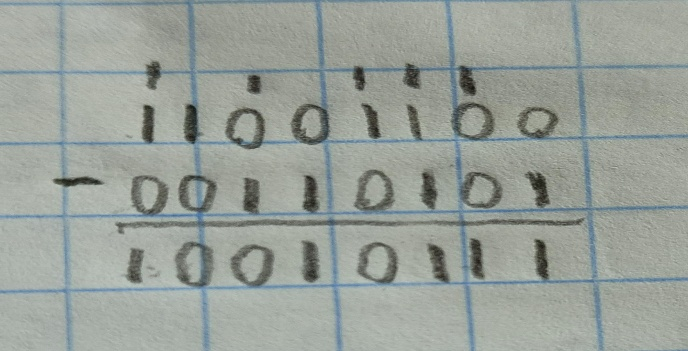 11001100
- 00110101
10010111